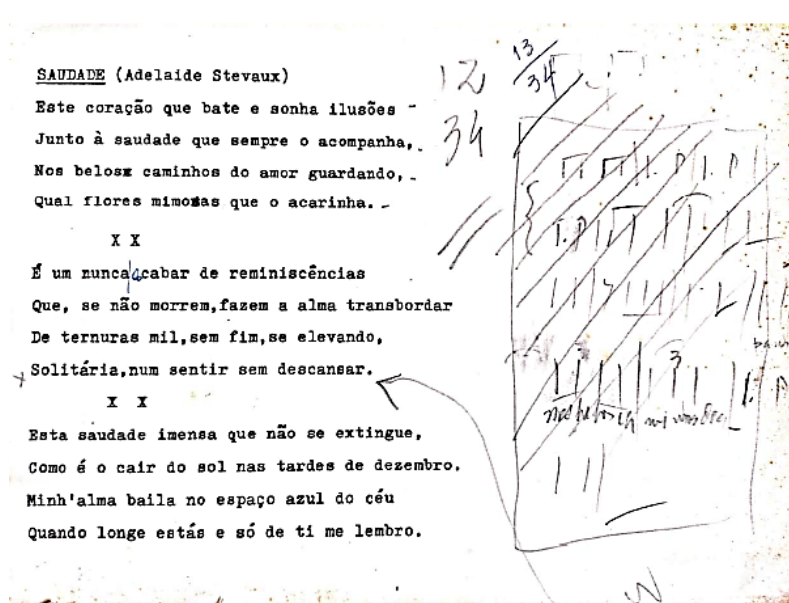 SAUDADE (Adelaide Stevaux)
Este coração que bate e sonha ilusões -
Junto à saudade que sempre o acompanha,
Nos belosx caminhos do amor guardando, -
Qual flores mimosas que o acarinha. -
X X
É um nunca acabar de reminiscências
Que, se não morrem,fazem a alma transbordar
De ternuras mil,sem fim,se elevando,
Solitária,num sentir sem descansar.
X X
Esta saudade imensa que não se extingue,
Como é o cair do sol nas tardes de dezembro.
Minh'alma baila no espaço azul do céu
Quando longe estás e só de ti me lembro.
12
34
13
34
3